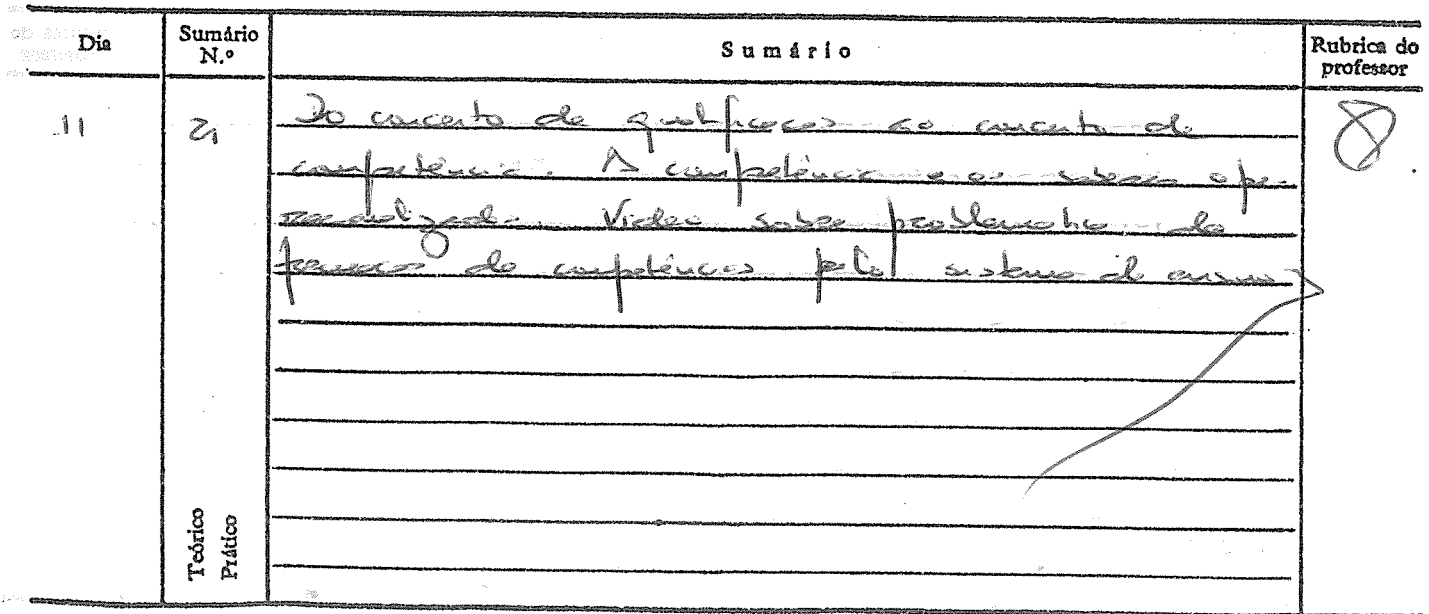 Dia
Sumário N.º
Sumário
Rubrica do professor
11
21
Do conceito de qualificação ao conceito de
competência. A competência e os saberes ope-
racionalizados. Video sobre problematica da
formação de competências pelo sistema de ensino
Teórico
Prático